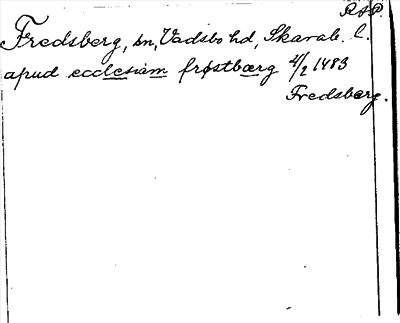 R A P.
Fredsberg, sn, Vadsbo hd, Skarab. l.
apud ecclesiam frøstbærg 4/2 1483
Fredsberg.